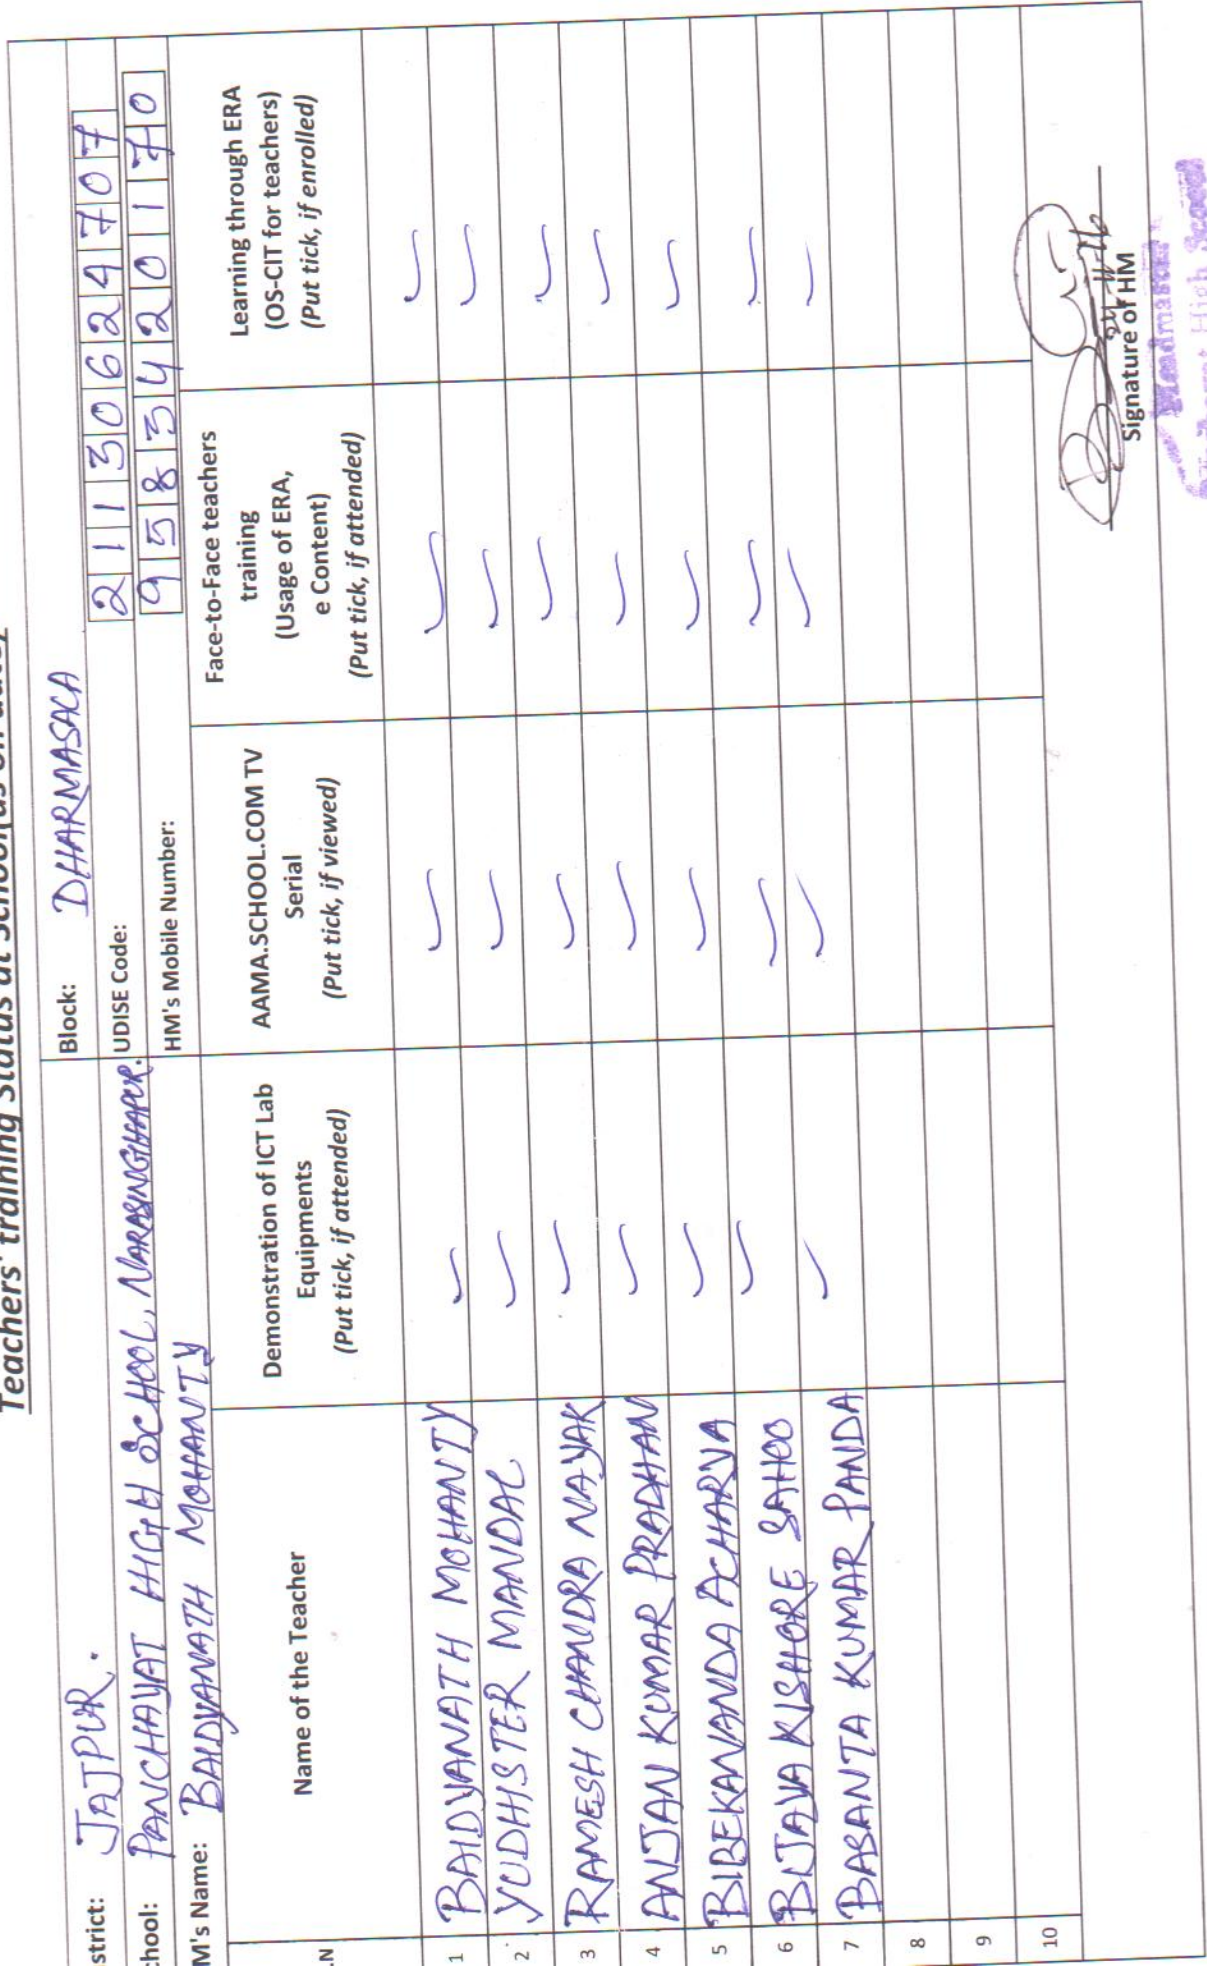 Teachers' training Status at School
strict: JAJPUR. Block: DHARMASALA
chool: PANCHAYAT HIGH SCHOOL, NARASINGHAPUR. UDISE Code: 21130624707
M's Name: BAIDYANATH MOHANTY HM's Mobile Number: 9583420170
.N Name of the Teacher Demonstration of ICT Lab Equipments (Put tick, if attended) AAMA.SCHOOL.COM TV Serial (Put tick, if viewed) Face-to-Face teachers training (Usage of ERA, e Content) (Put tick, if attended) Learning through ERA (OS-CIT for teachers) (Put tick, if enrolled)
1 BAIDYANATH MOHANTY ✓ ✓ ✓ ✓
2 YUDHISTER MANDAL ✓ ✓ ✓ ✓
3 RAMESH CHANDRA NAYAK ✓ ✓ ✓ ✓
4 ANJAN KUMAR PRADHAN ✓ ✓ ✓ ✓
5 BIBEKANANDA ACHARYA ✓ ✓ ✓ ✓
6 BIJAYA KISHORE SAHOO ✓ ✓ ✓ ✓
7 BASANTA KUMAR PANDA ✓ ✓ ✓ ✓
8
9
10
Signature of HM
Headmaster
High School